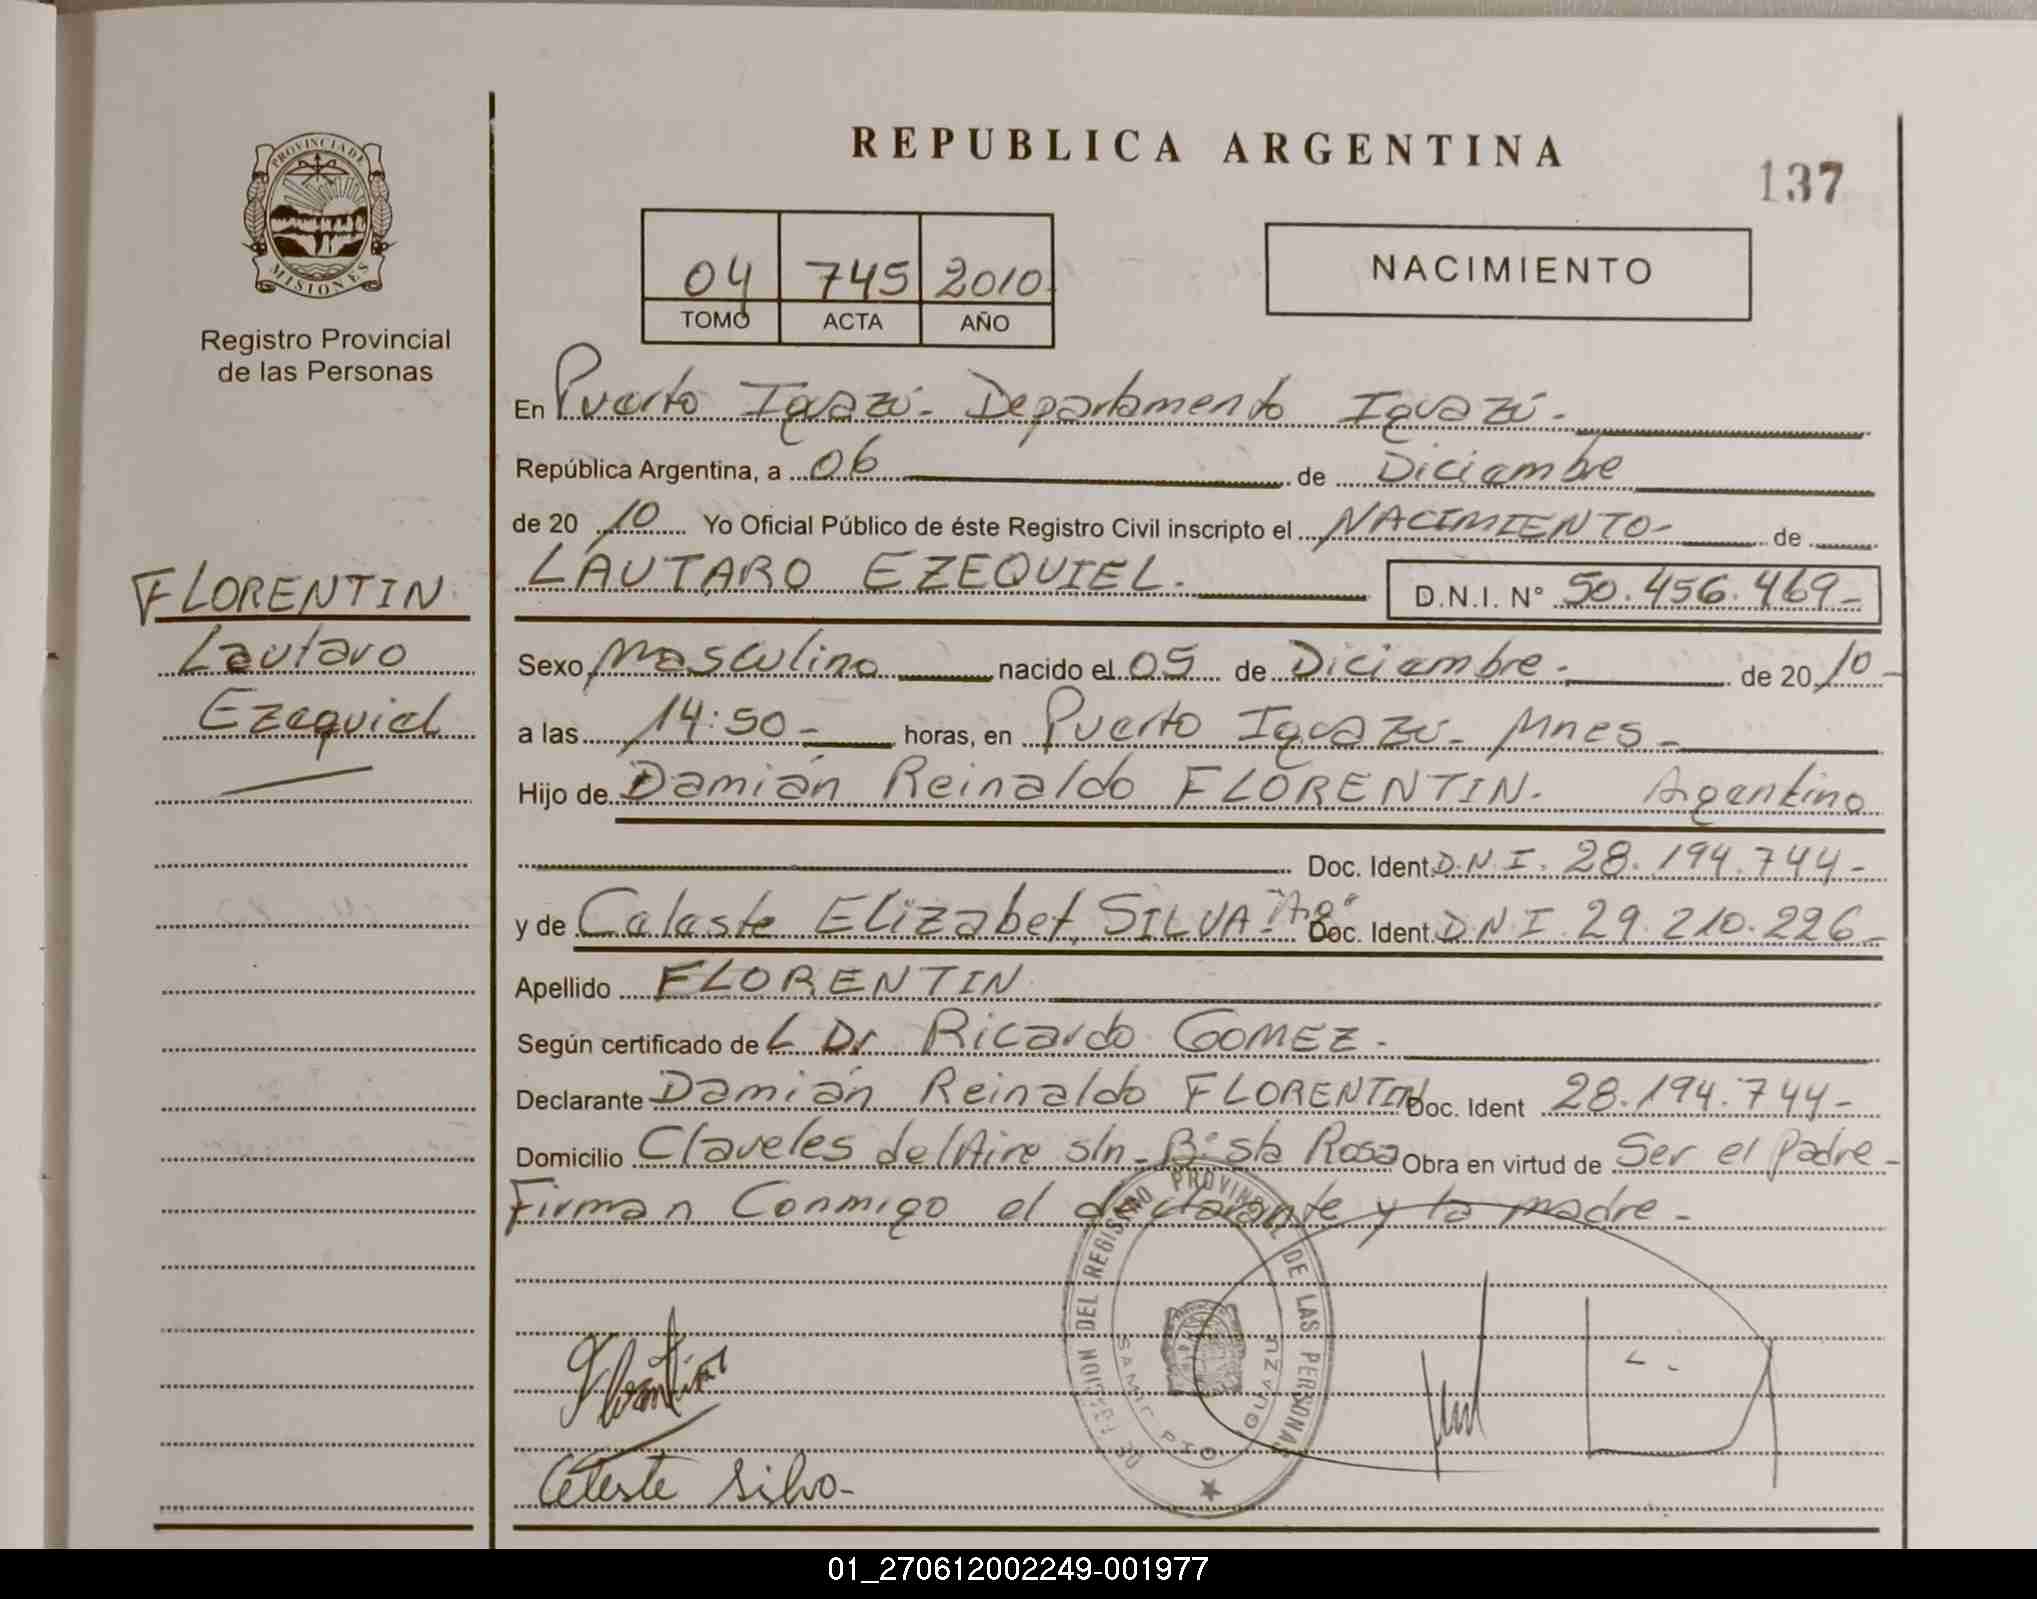 REPUBLICA ARGENTINA
137
PROVINCIA DE
MISIONES
Registro Provincial
de las Personas
04 745 2010
TOMO ACTA AÑO
NACIMIENTO
En Puerto Iguazú - Departamento Iguazú -
República Argentina, a 06 de Diciembre
de 20 10 Yo Oficial Público de éste Registro Civil inscripto el NACIMIENTO - de
LAUTARO EZEQUIEL. D.N.I. N° 50.456.469-
FLORENTIN
Lautaro
Ezequiel
Sexo Masculino nacido el 05 de Diciembre - de 20 10 -
a las 14:50 - horas, en Puerto Iguazú - Mnes -
Hijo de Damián Reinaldo FLORENTIN. Argentino
Doc. Ident. D.N.I. 28.194.744-
y de Celeste Elizabet SILVA "Ag" Doc. Ident. D.N.I 29.210.226-
Apellido FLORENTIN
Según certificado de L Dr Ricardo GOMEZ -
Declarante Damián Reinaldo FLORENTIN Doc. Ident 28.194.744-
Domicilio Claveles del Aire s/n - B° Sta Rosa Obra en virtud de Ser el Padre -
Firman Conmigo el declarante y la madre -
DEL REGISTRO PROVINCIAL DE LAS PERSONAS
SAMIC PTO IGUAZU
Florentin
Celeste Silva -
01_270612002249-001977